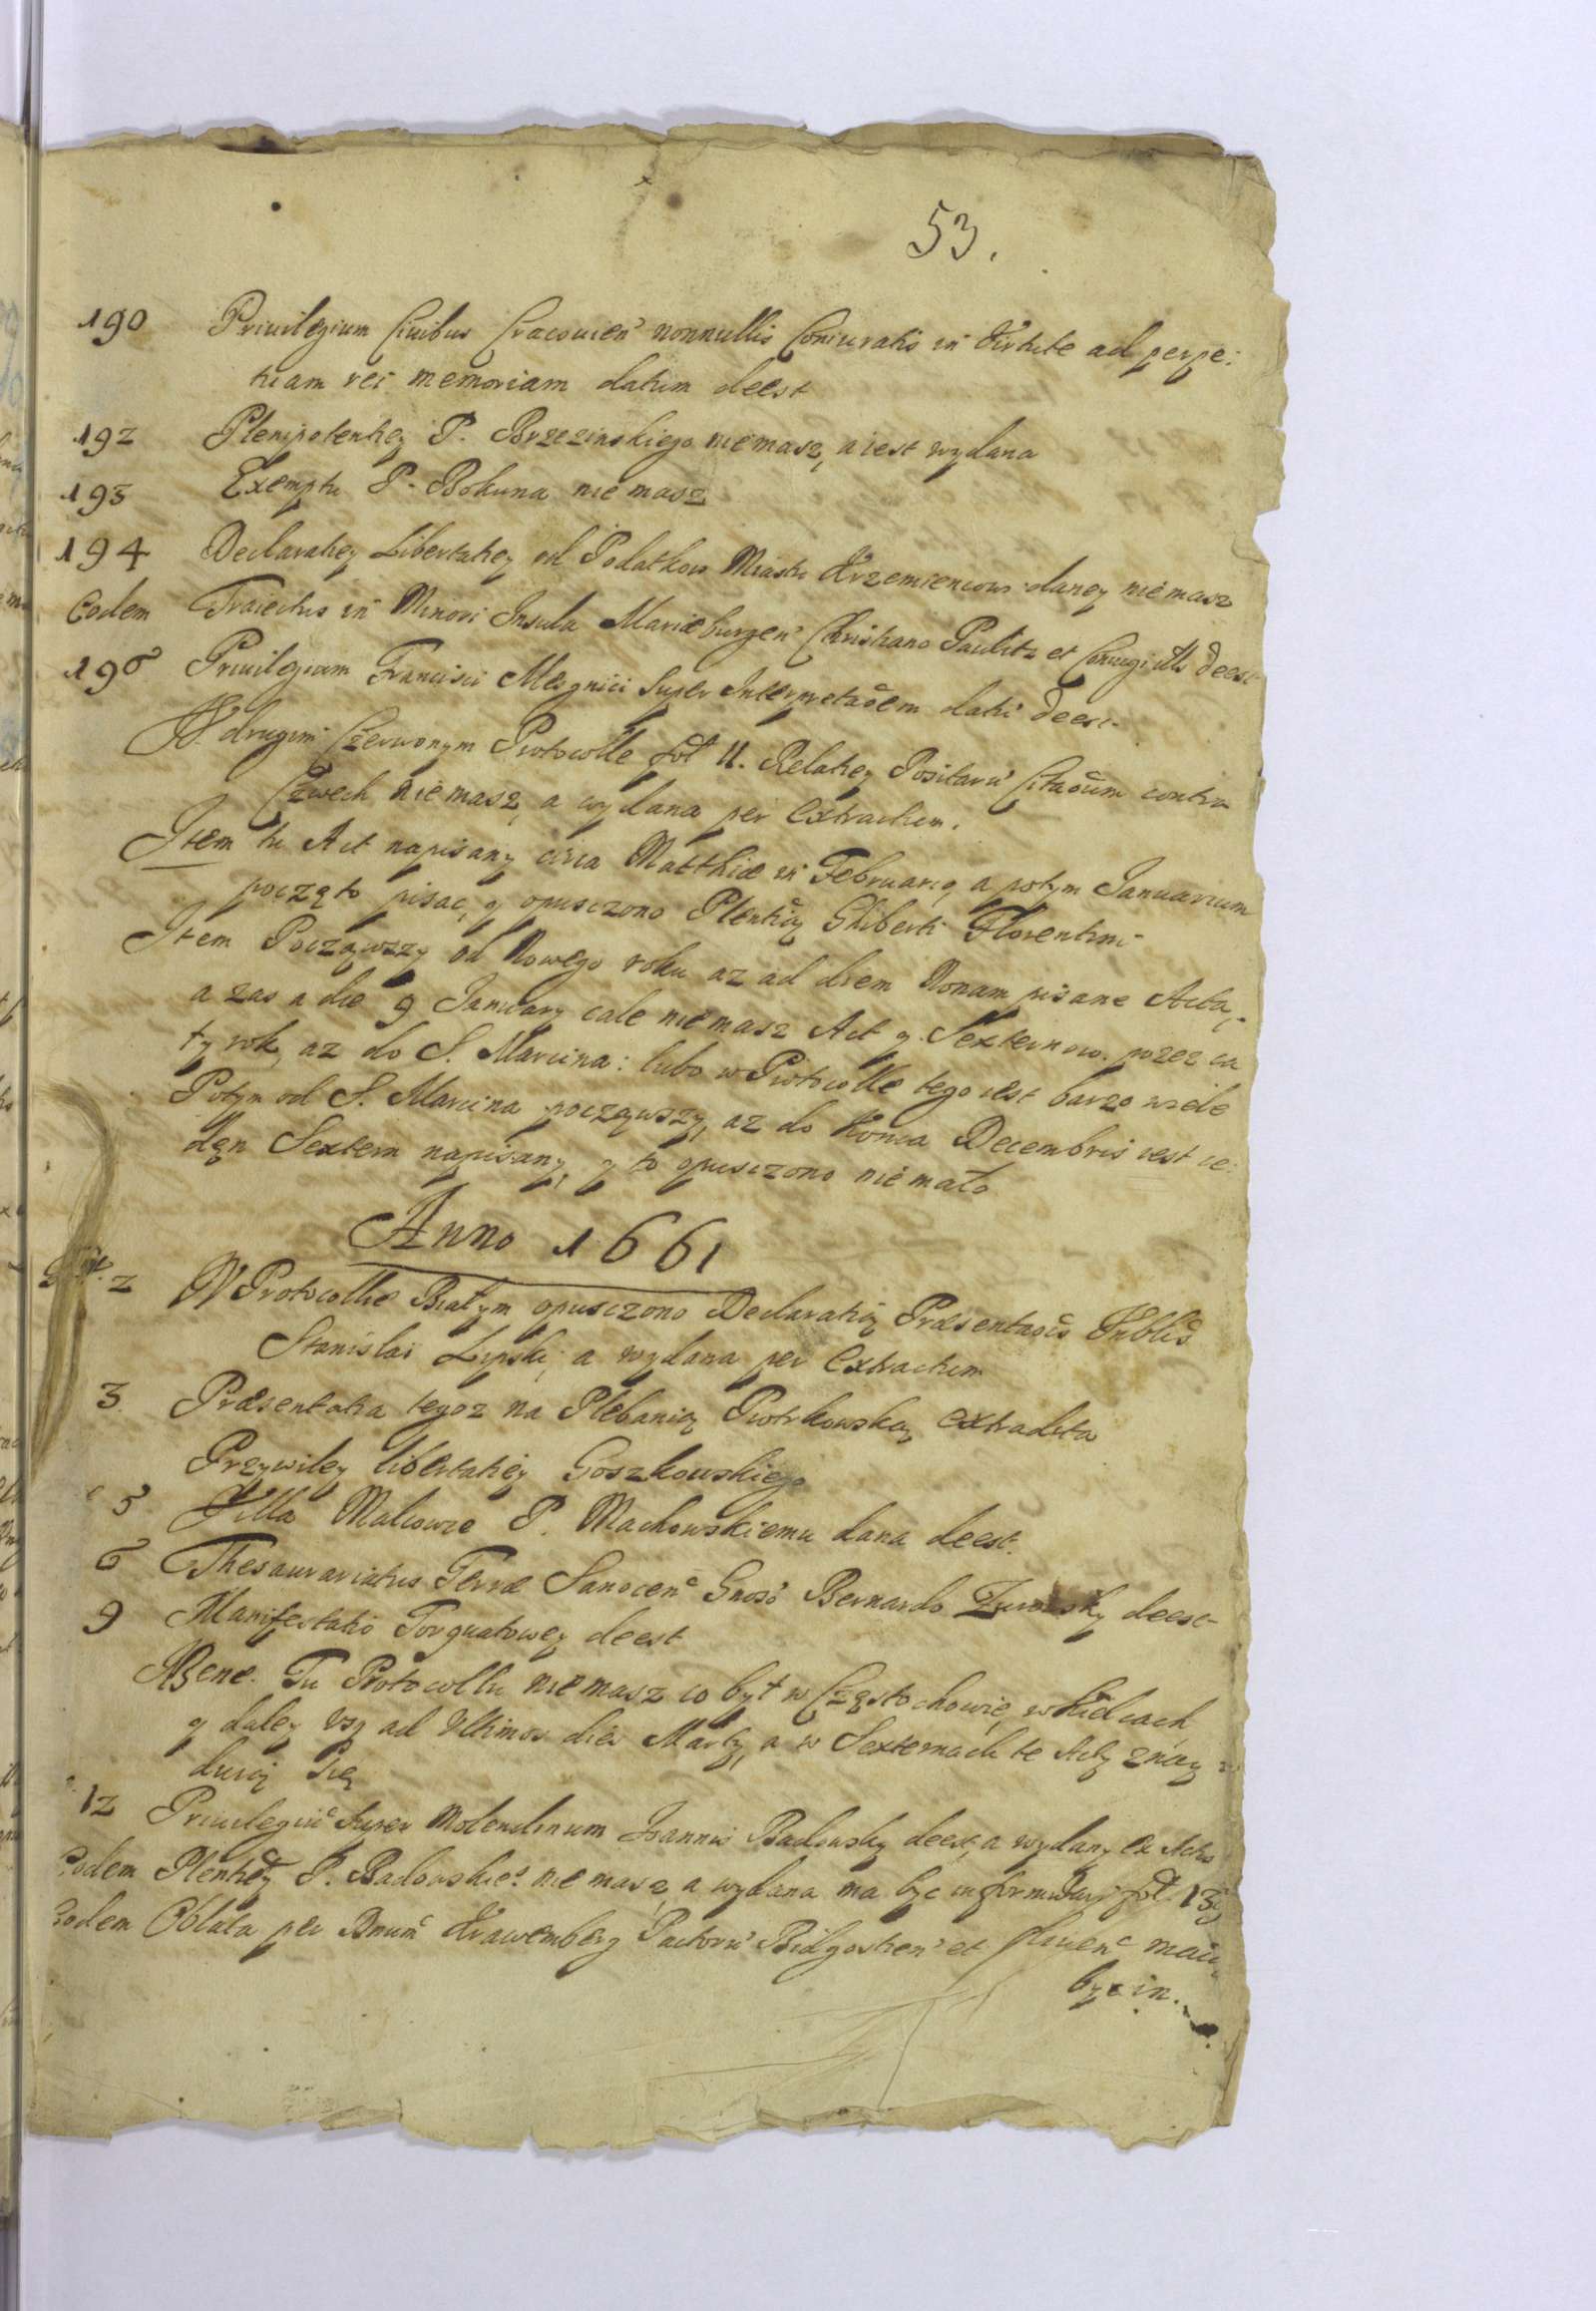 53.
190 Priuilegium Ciuibus Cracouien' nonnullis Coniuratis in Virtute ad perpe:
tuam rei memoriam datum deest
192 Plenipotentiey P. Brzezinskiego niemasz, a iest wydana
193 Exemptu P. Bokuna nie masz
194 Declaratiey Libertatiey od Podatkow Miastu Krzemiencowi daney niemasz
Eodem Traiectus in Minori Insula Mariæburgen' Christiano Paulitz et Coniugi deest
196 Priuilegium Francisci Mesgnici super Interpretaoem dati deest
W drugim Czerwonym Protocolle fol 11. Relatiey Positaru' Citaoum contra
Czwech niemasz, a wydana per Extractum.
Item tu Act napisany circa Matthiæ in Februario, a potym Januarium
poczęto pisac, y opusczono Plentią Ghiberti Florentini
Item Począwszy od Nowego roku az ad diem Nonam pisane Acta,
a zas a die 9 January cale niemasz Act y Sexternow przez ca
ty rok, az do S. Marcina: lubo w Protocolle tego iest barzo wiele
Potym od S. Marcina począwszy, az do Konca Decembris iest ie:
den Sextern napisany, y to opusczono nie mało
Anno 1661
2 W Protocolle Białym opusczono Declaratią Præsentaois
Stanislai Lipski, a wydana per Extractum
3. Præsentatia tegoz na Plebanią Piotrkowską extradita
Przywiley libertatiey Goszkowskiego
5 Villa Malcowie P. Machowskiemu dana deest.
6 Thesaurariatus Terræ Sanocen' Gnoso Bernardo deest
9 Manifestatio Torquatowey deest
NBene. Tu Protocollu niemasz co był w Częstochowie, w Kielcach
y daley usq ad Ultimos dies Marty, a w Sexternach te Acty znay
duią się
12 Priuilegiu' super Molendinum Joannis Badowsky deest, a wydany ex Actis
Eodem Plentiey P. Badowskie' nie masz, a wydana ma byc in formulari fol. 13
Eodem Oblata per Krawemberg Bidgostien' et maią
byc in.